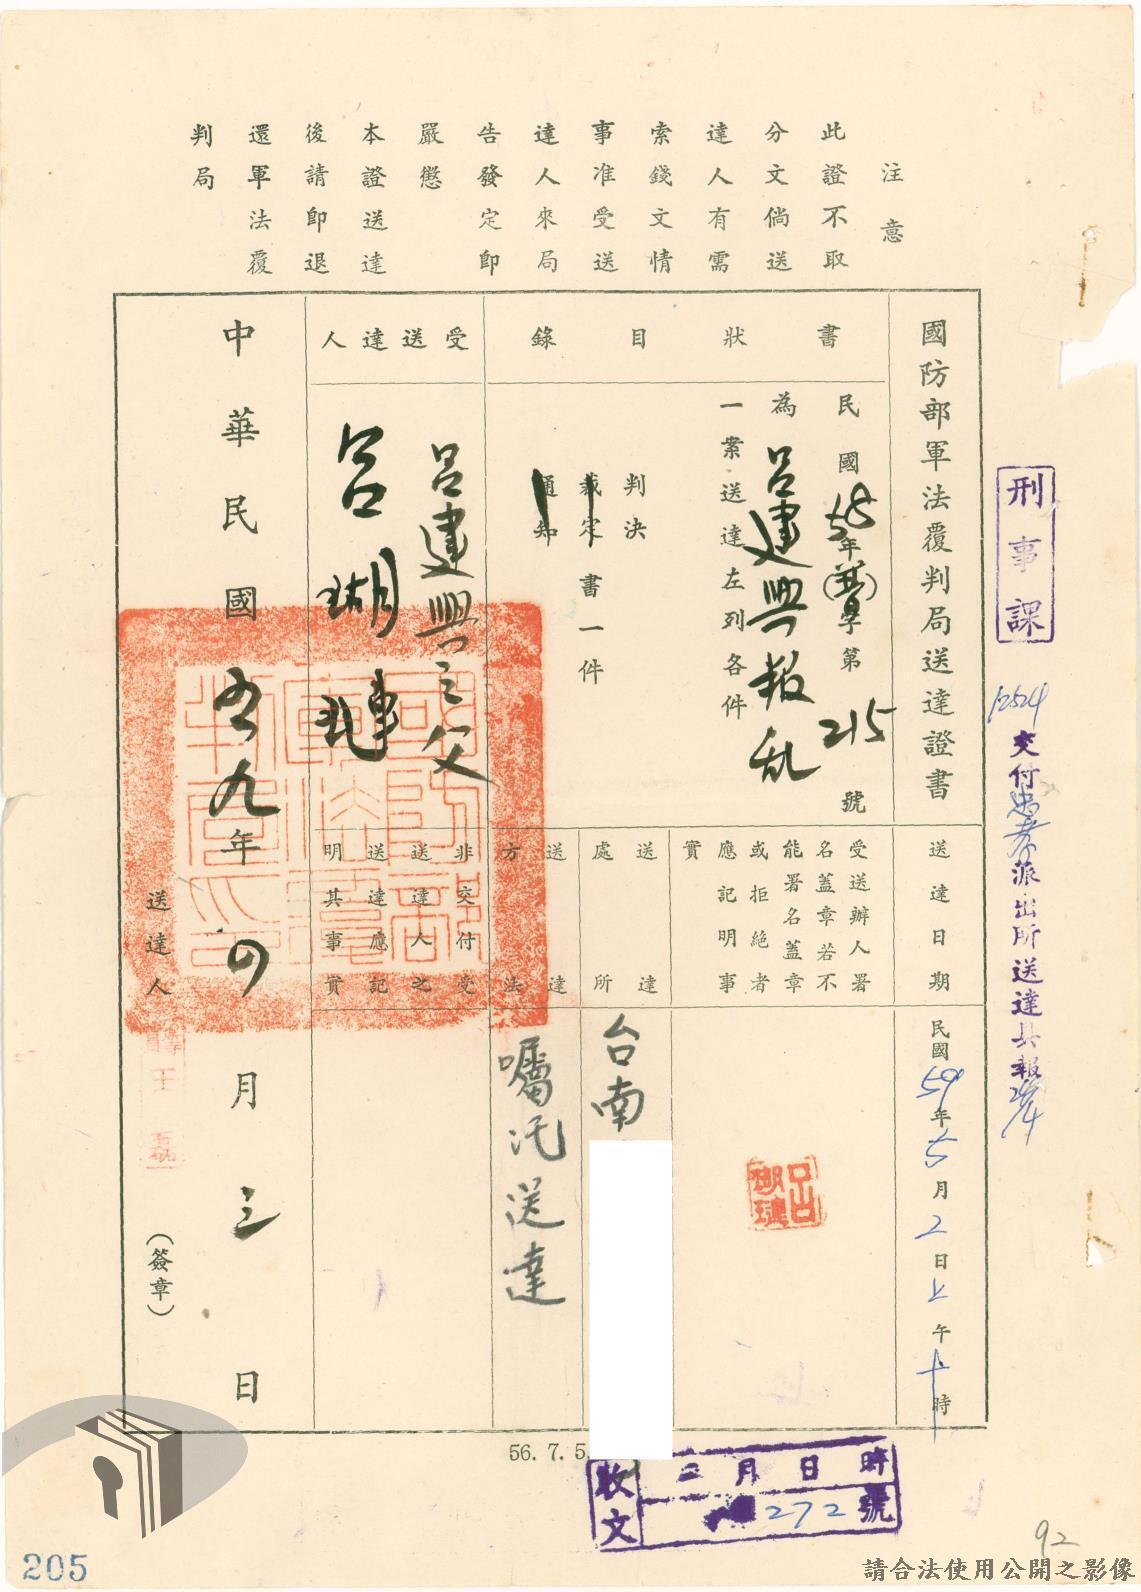 注意
此證不取
分文倘送
達人有需
索錢文情
事准受送
達人來局
告發定即
嚴懲
本證送達
後請即退
還軍法覆
判局
國防部軍法覆判局送達證書
書狀目錄
民國58年(覆)字第215號
為呂建興叛乱
一案送達左列各件
判決
裁定書一件
通知
受送達人
呂建興之父
呂瑚璉
中華民國五九年四月三日
送達日期
民國59年5月2日上午十時
受送辦人署
名蓋章若不
能署名蓋章
或拒絕者
應記明事
實
呂瑚璉
送達處所
台南
送達方法
囑託送達
非交付受
送達人之
送達應記
明其事實
送達人
王磊
(簽章)
刑事課
交付忠孝派出所送達具報
56. 7. 5.
收文
月日時
272號
92
205
請合法使用公開之影像